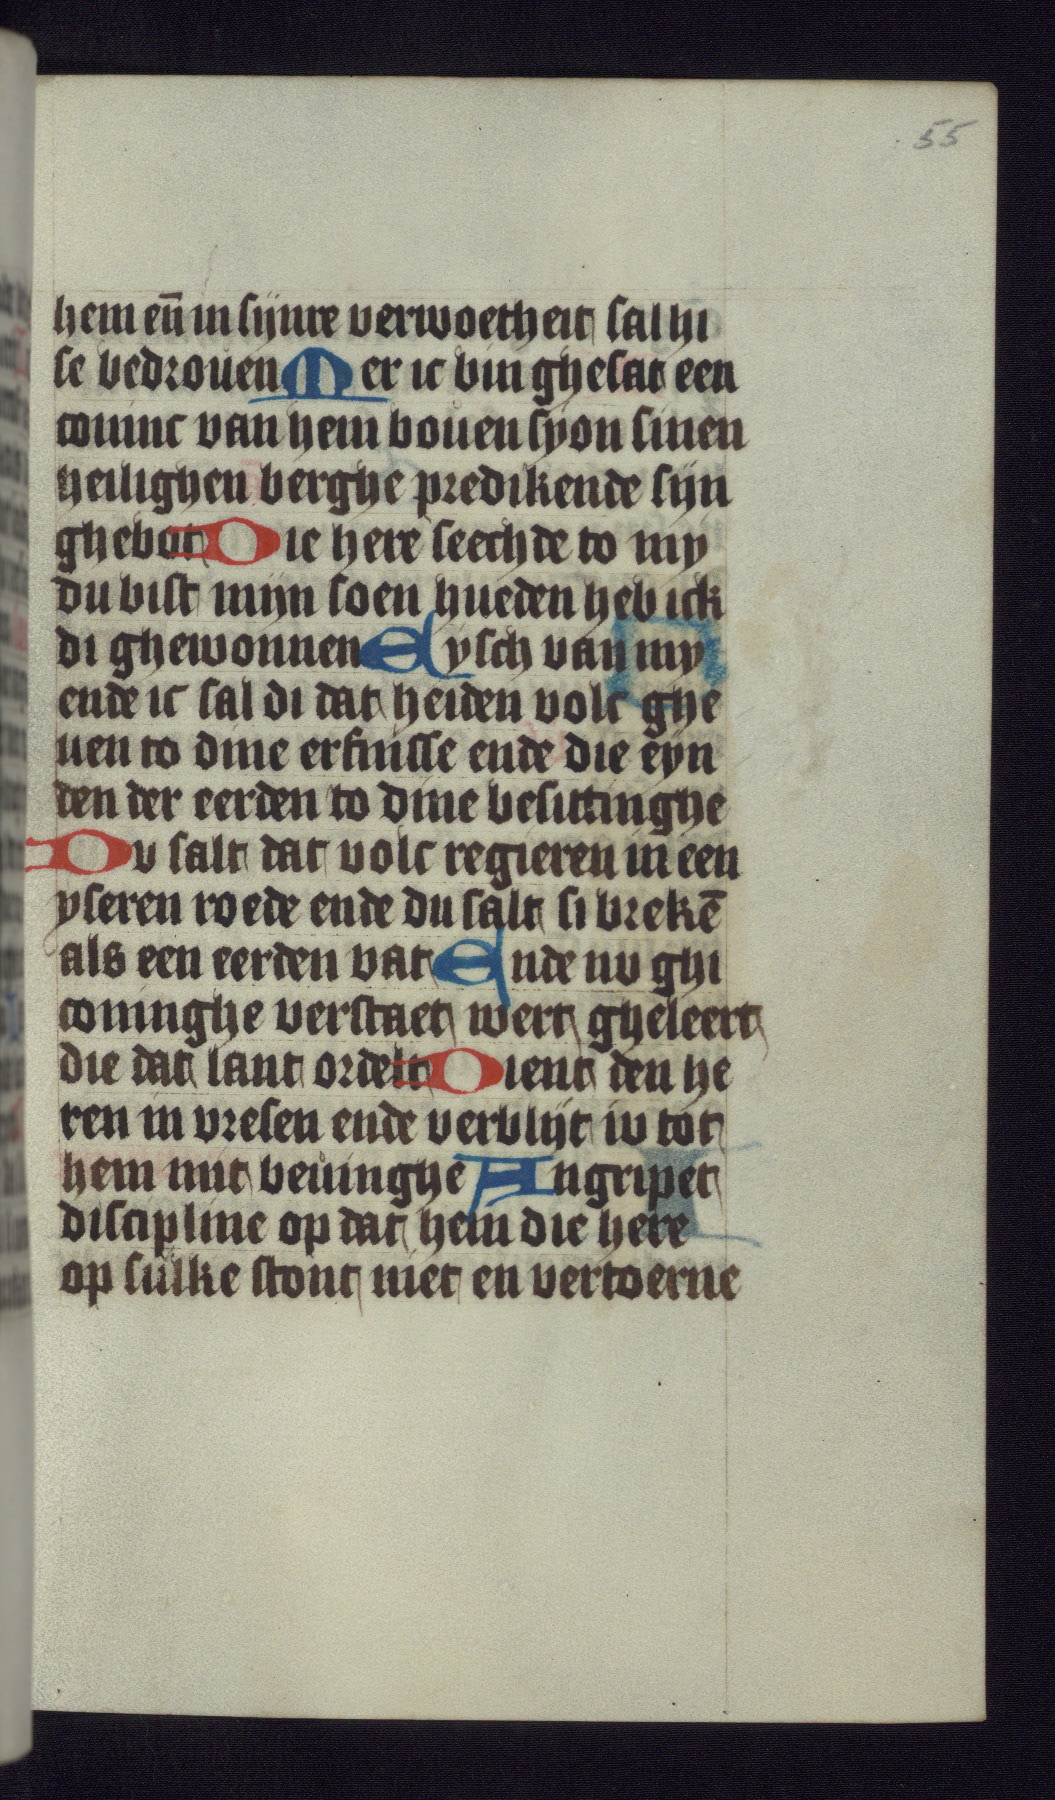 55
hem en̄ in sijnre verwoetheit sal hi
se bedrouen Mer ic bin ghesat een
coninc van hem bouen syon sinen
heilighen berghe predikende sijn
ghebot Die here seechde to my
du bist mijn soen hueden heb ick
di ghewonnen Eysch van my
ende ic sal di dat heiden volc ghe
uen to dine erfnisse ende die eyn
den der eerden to dine besittinghe
Du salt dat volc regieren in een
yseren roede ende du salt si brekē
als een eerden vat Ende nu ghi
coninghe verstaet wert gheleert
die dat lant ordelt Dient den he
ren in vresen ende verblijt iu tot
hem mit beuinghe Angripet
discipline op dat hem die here
op sulke stont niet en vertoerne